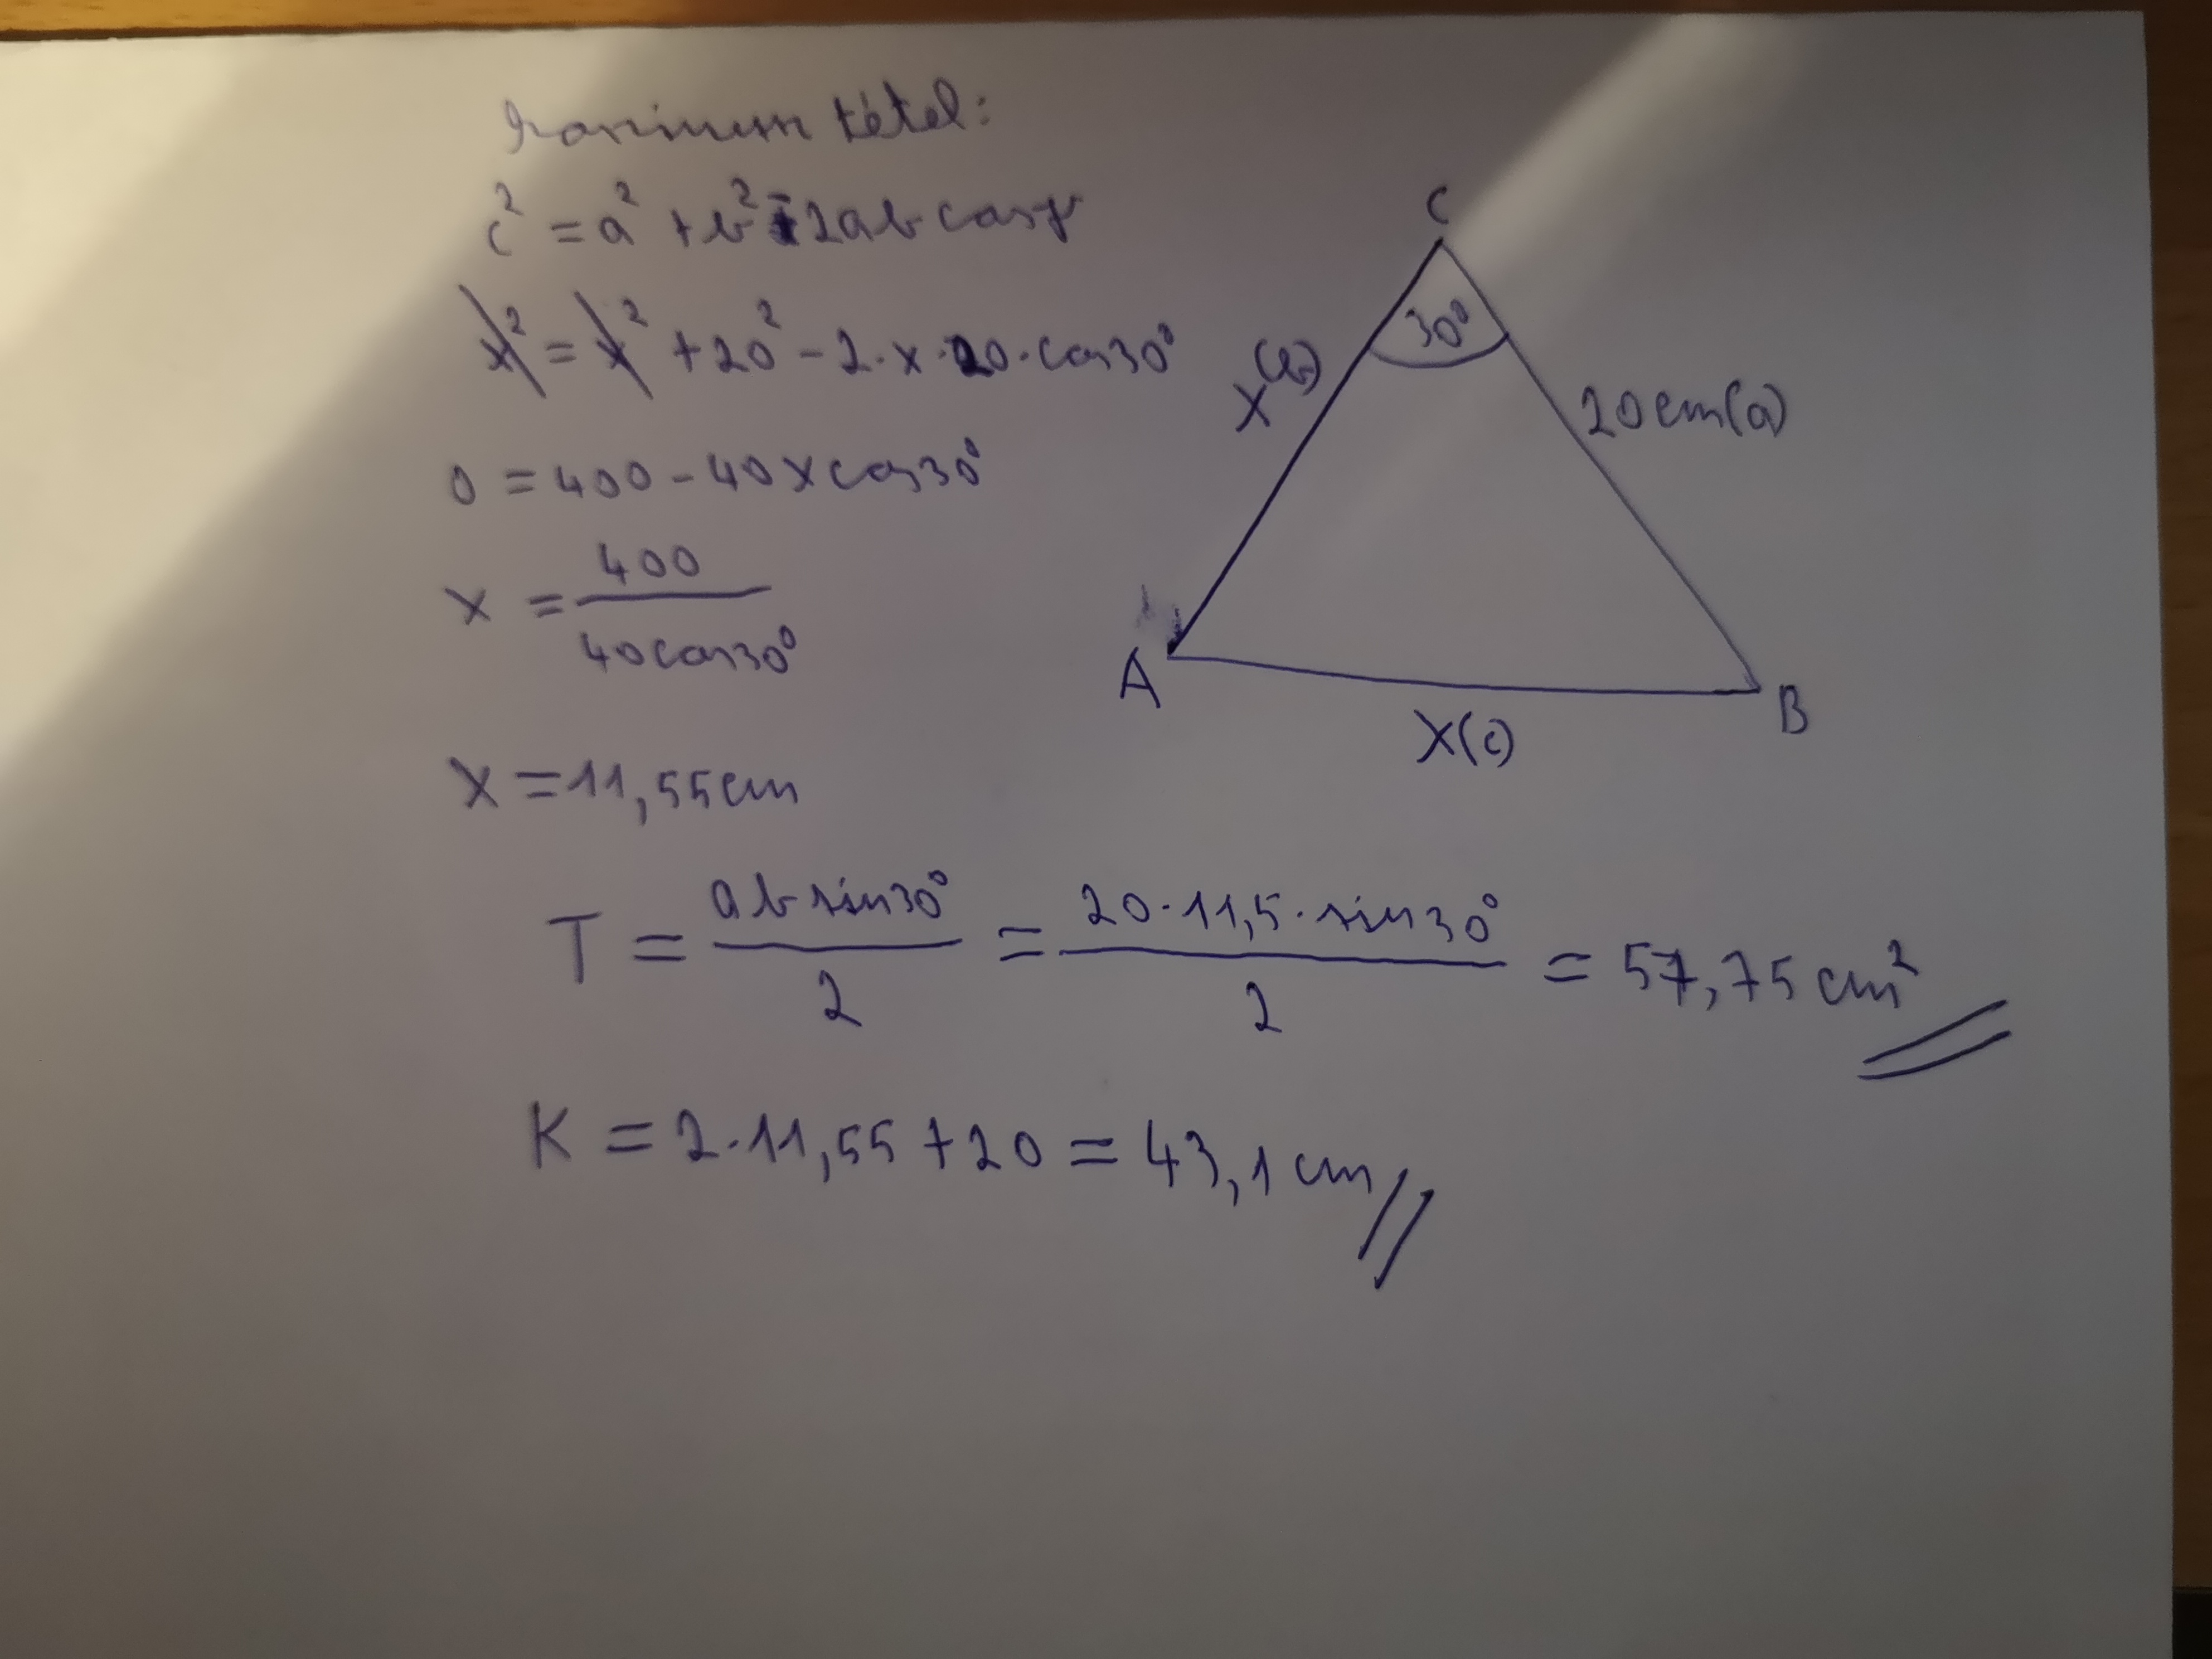 Kosinusz tétel:
c² = a² + b² - 2ab cosγ
x² = x² + 20² - 2·x·20·cos30°
0 = 400 - 40xcos30°
x = 400 / 40cos30°
x = 11,55cm
T = ab sin30° / 2 = 20·11,5·sin30° / 2 = 57,75 cm²
K = 2·11,55 + 20 = 43,1 cm
C
30°
x (b)
20cm(a)
A
B
x(c)